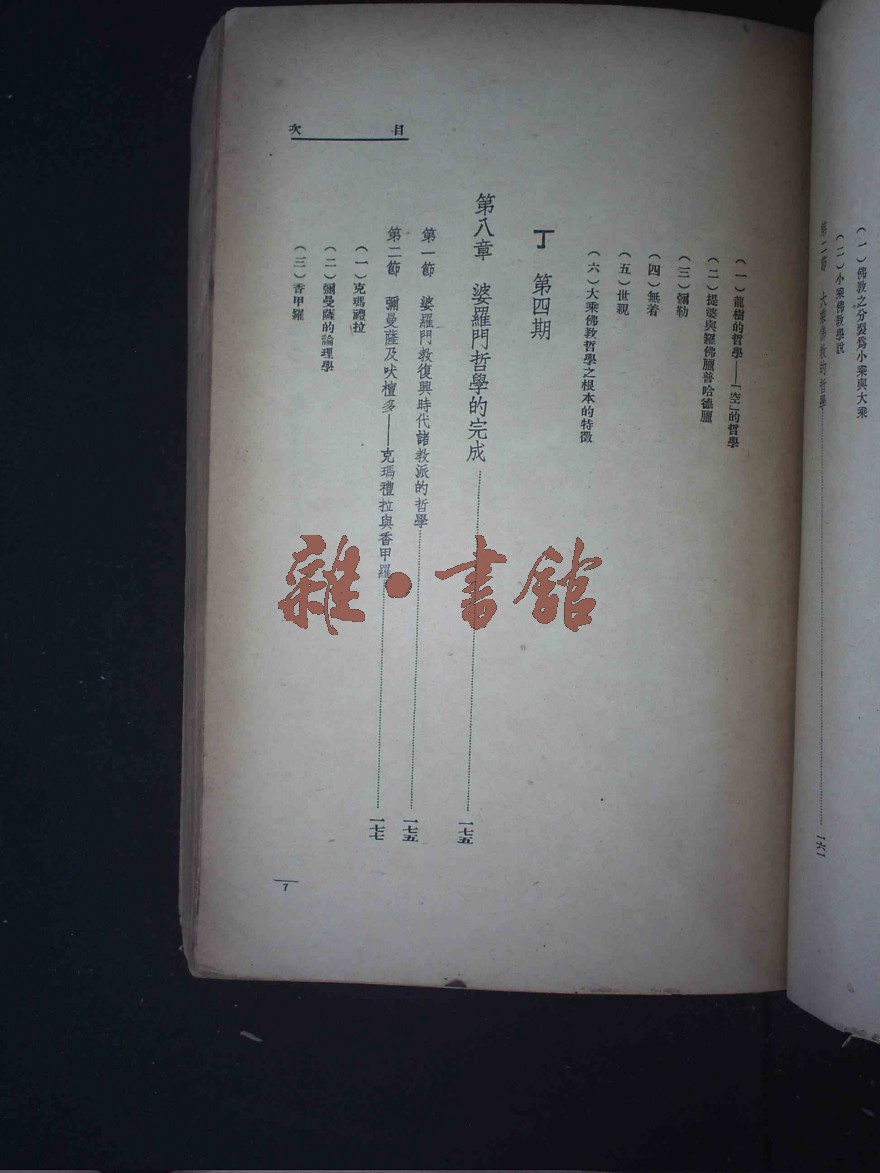 (一)佛教之分裂爲小乘與大乘
(二)小乘佛教學說
第二節 大乘佛教的哲學……一六一
目次
(一)龍樹的哲學——「空」的哲學
(二)提婆與羅佛臘普哈德臘
(三)彌勒
(四)無着
(五)世親
(六)大乘佛教哲學之根本的特徵
丁 第四期
第八章 婆羅門哲學的完成……一七五
第一節 婆羅門教復興時代諸教派的哲學……一七五
第二節 彌曼薩及吠檀多——克瑪禮拉與香甲羅……一七七
(一)克瑪禮拉
(二)彌曼薩的論理學
(三)香甲羅
7
雜·書館